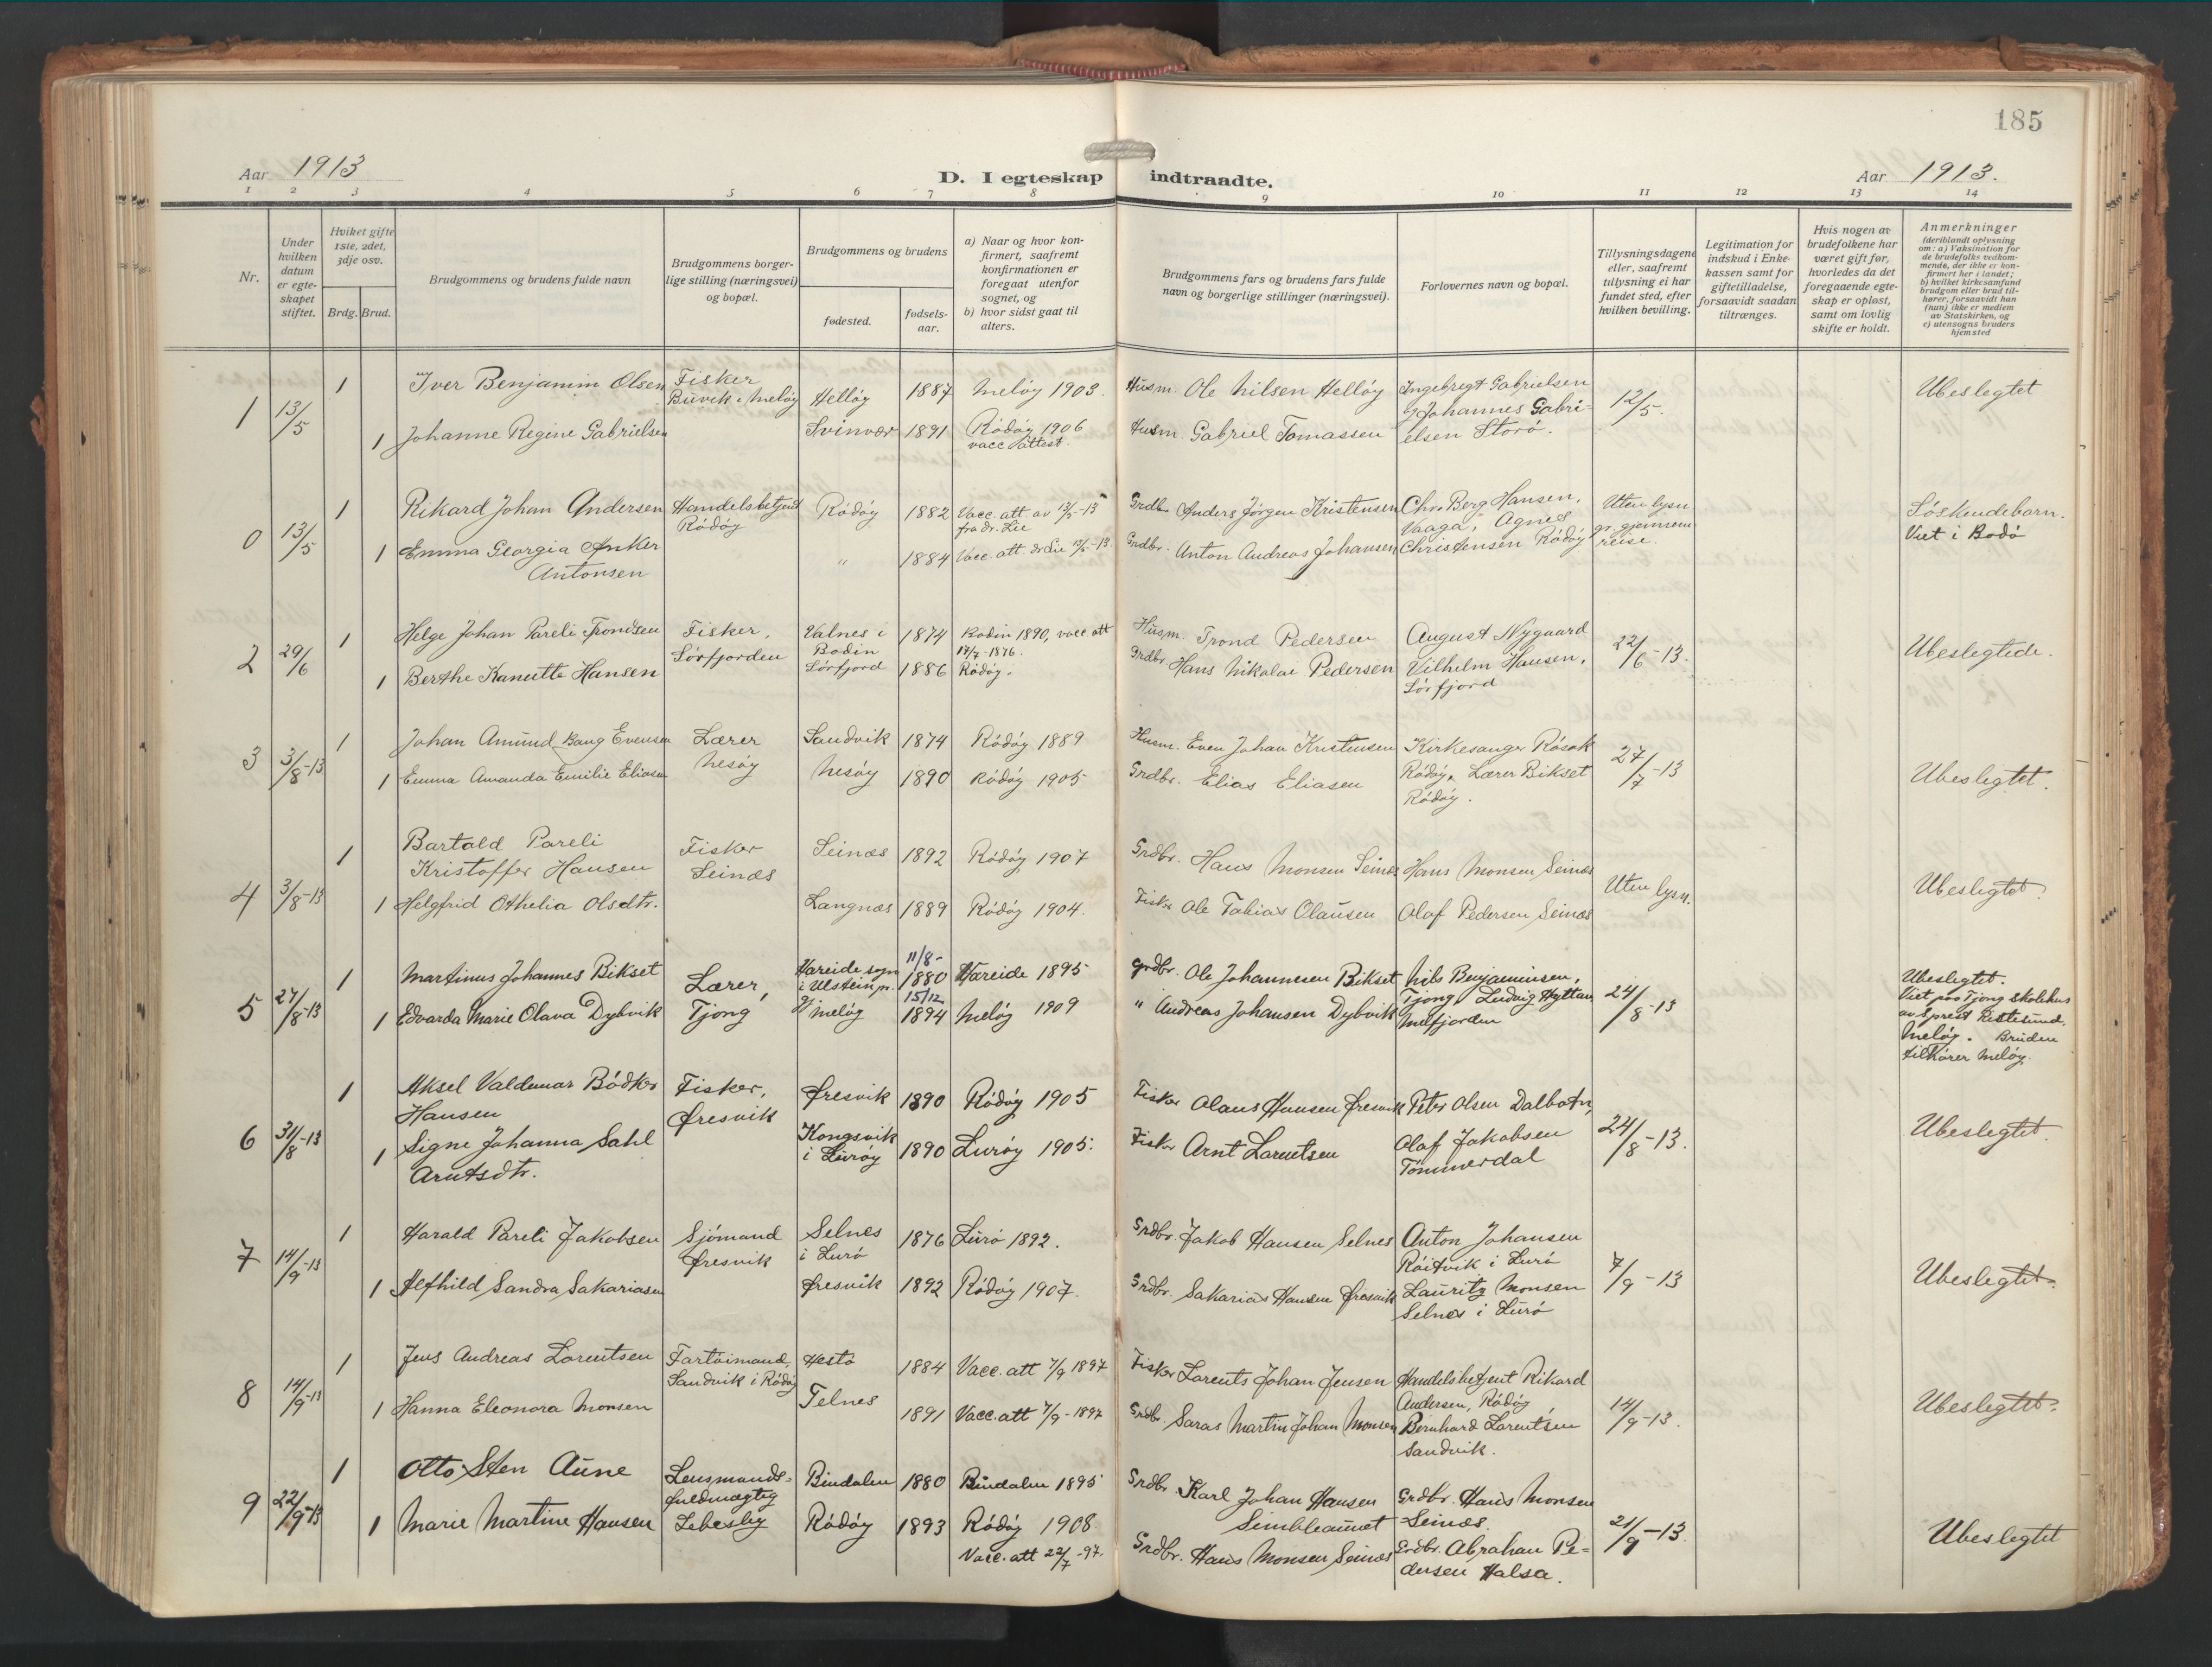 185
Aar 1913
D. I egteskap indtraadte.
Aar 1913.
1 2 3 4 5 6 7 8 9 10 11 12 13 14
Nr.
Under hvilken datum er egteskapet stiftet.
Hviket gifte 1ste, 2det, 3dje osv.
Brdg. Brud.
Brudgommens og brudens fulde navn
Brudgommens borgerlige stilling (næringsvei) og bopæl.
Brudgommens og brudens
fødested.
fødselsaar.
a) Naar og hvor konfirmert, saafremt konfirmationen er foregaat utenfor sognet, og
b) hvor sidst gaat til alters.
Brudgommens fars og brudens fars fulde navn og borgerlige stillinger (næringsvei).
Forlovernes navn og bopæl.
Tillysningsdagene eller, saafremt tillysning ei har fundet sted, efter hvilken bevilling.
Legitimation for indskud i Enkekassen samt for giftetilladelse, forsaavidt saadan tiltrænges.
Hvis nogen av brudefolkene har været gift før, hvorledes da det foregaaende egteskap er opløst, samt om lovlig skifte er holdt.
Anmerkninger (deriblandt oplysning om: a) Vaksination for de brudefolks vedkommende, der ikke er konfirmert her i landet; b) hvilket kirkesamfund brudgom eller brud tilhører, forsaavidt han (hun) ikke er medlem av Statskirken, og c) utensogns bruders hjemsted
1 13/5
1 Iver Benjamin Olsen Fisker Buvik i Meløy Helløy 1887 Meløy 1903. Husm. Ole Nilsen Helløy Ingebregt Gabrielsen 12/5. Ubeslegtet
1 Johanne Regine Gabrielsen Svinvær 1891 Rödöy 1906 vacc. attest. Husm. Gabriel Tomassen og Johannes Gabrielsen Storö.
0 13/5
1 Rikard Johan Andersen Handelsbetjent Rödöy Rödöy 1882 Vacc. att. av 12/5-13 fra dr. Lie Grdbr. Anders Jørgen Kristensen Chr. Berg Hansen, Vaaga, Uten lysn gr. gjennemreise. Søskendebarn. Viet i Bodö
1 Emma Georgia Anker Antonsen " 1884 Vacc. att. dr Lie 12/5-13. Grdbr. Anton Andreas Johansen Agnes Christensen Rödöy
2 29/6
1 Helge Johan Pareli Trondsen Fisker, Sörfjorden Valnes i Bodin 1874 Bodin 1890, vacc. att 17/7-1876. Husm. Trond Pedersen August Nygaard 22/6-13. Ubeslegtede.
1 Berthe Kanutte Hansen Sörfjord 1886 Rödöy. Grdbr. Hans Nikolai Pedersen Vilhelm Hansen, Sörfjord
3 3/8-13
1 Johan Amund Bang Evensen Lærer Nesöy Sandvik 1874 Rödöy 1889 Husm. Even Johan Kristensen Kirkesanger Røsok Rödöy, 27/7-13
1 Emma Amanda Emilie Eliasen Nesöy 1890 Rödöy 1905 Grdbr. Elias Eliasen Lærer Bikset Rödöy. Ubeslegtet.
4 3/8-13
1 Bartald Pareli Kristoffer Hansen Fisker Seinæs Seinæs 1892 Rödöy 1907 Grdbr. Hans Monsen Seinæs Hans Monsen Seinæs Uten lysn. Ubeslegtet.
1 Helgfrid Othelia Olsdtr. Langnæs 1889 Rödöy 1904. Fisker Ole Tobias Olausen Olaf Pedersen Seinæs
5 27/8-13
1 Martinus Johannes Bikset Lærer, Tjong Hareide sogn i Ulstein p. 11/8-1880 Hareide 1895 Grdbr. Ole Johannesen Bikset Nils Benjaminsen, Tjong 24/8-13 Ubeslegtet. Viet paa Tjong skolehus av Sprest Meløy. Bruden tilhører Meløy.
1 Edvarda Marie Olava Dybvik Meløy 15/12 1894 Meløy 1909 " Andreas Johansen Dybvik Ludvig Melfjorden
6 31/8-13
1 Aksel Valdemar Bödker Hansen Fisker, Øresvik Øresvik 1890 Rödöy 1905 Fisker Olaus Hansen Øresvik Peter Olsen Dalbotn, 24/8-13. Ubeslegtet.
1 Signe Johanna Sahl Arntsdtr. Kongsvik i Luröy 1890 Luröy 1905. Fisker Arnt Lorentsen Olaf Jakobsen Tömmerdal
7 14/9-13
1 Harald Pareli Jakobsen Sjömand Øresvik Selnes i Lurö 1876 Lurö 1892. Grdbr. Jakob Hansen Selnes Anton Johansen Röitvik i Lurö 7/9-13 Ubeslegtet.
1 Alfhild Sandra Sakariasen Øresvik 1892 Rödöy 1907. Grdbr. Sakarias Hansen Øresvik Lauritz Monsen Selnes i Lurö
8 14/9-13
1 Jens Andreas Lorentsen Fartöimand, Sandvik i Rödöy Hestö 1884 Vacc. att 7/9 1897 Fisker Lorents Johan Jensen Handelsbetjent Rikard Andersen, Rödöy 14/9-13. Ubeslegtet.
1 Hanna Eleonora Monsen Telnes 1891 Vacc. att 7/9-1897 Grdbr. Saras Martin Johan Monsen Bernhard Lorentsen Sandvik.
9 22/9-13
1 Otto Sten Aune Lensmandsfuldmægtig Lebesby Bindalen 1880 Bindalen 1895 Grdbr. Karl Johan Hansen Simbleaunet Grdbr. Hans Monsen Seinæs. 21/9-13. Ubeslegtet
1 Marie Martine Hansen Rödöy 1893 Rödöy 1908 Vacc. att 22/7-97. Grdbr. Hans Monsen Seinæs Grdbr. Abrahan Pedersen Halsa.